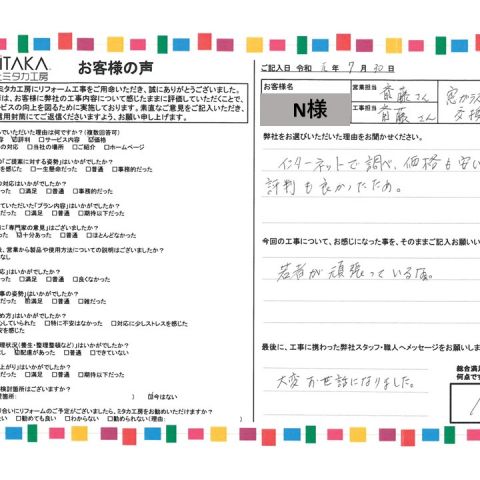 ITAKA
ミタカ工房
お客様の声
ミタカ工房にリフォーム工事をご用命いただき、誠にありがとうございました。
は、お客様に弊社の工事内容について感じたままに評価していただくことで、
ービスの向上を図るために実施しております。率直なご意見をご記入いただき、
信用封筒にてご返信くださいますよう、お願い申し上げます。
んでいただいた理由は何ですか?(複数回答可)
評判 □サービス内容 価格
の対応 □当社の場所 □ご紹介 □ホームページ
の「ご提案に対する姿勢」はいかがでしたか?
を感じた □一生懸命だった □普通 □事務的だった
の対応はいかがでしたか?
った □満足 □普通 □事務的だった
ていただいた「プラン内容」はいかがでしたか?
だった □満足 □普通 □期待以下だった
に「専門家の意見」はございましたか?
った 十分あった □普通 □ほとんどなかった
後、営業から製品や使用方法についての説明はございましたか?
なし
応」はいかがでしたか?
だった 満足 □普通 □良くなかった
事の姿勢」はいかがでしたか?
だった 満足 □普通 □雑だった
め方」はいかがでしたか?
心していられた □特に不安はなかった □対応に少しストレスを感じた
安を感じた
理状況(養生・整理整頓など)」はいかがでしたか?
配慮があった □普通 □できていない
上がり」はいかがでしたか?
だった □満足 □普通 □期待以下だった
検討箇所はございますか?
箇所: ) 今はない
り合いにリフォームのご予定がございましたら、ミタカ工房をお勧めいただけますか?
たい □勧めても良い □わからない □勧められない(理由: )
ご記入日 令和 元年 7月 30日
お客様名
N様
営業担当 斎藤さん
工事担当 斎藤さん
窓ガラス
交換
弊社をお選びいただいた理由をお聞かせください。
インターネットで調べ、価格も安い
評判も良かったため。
今回の工事について、お感じになった事を、そのままご記入お願いい
若者が頑張っている店。
最後に、工事に携わった弊社スタッフ・職人へメッセージをお願いしま
大変お世話になりました。
総合満足
何点です